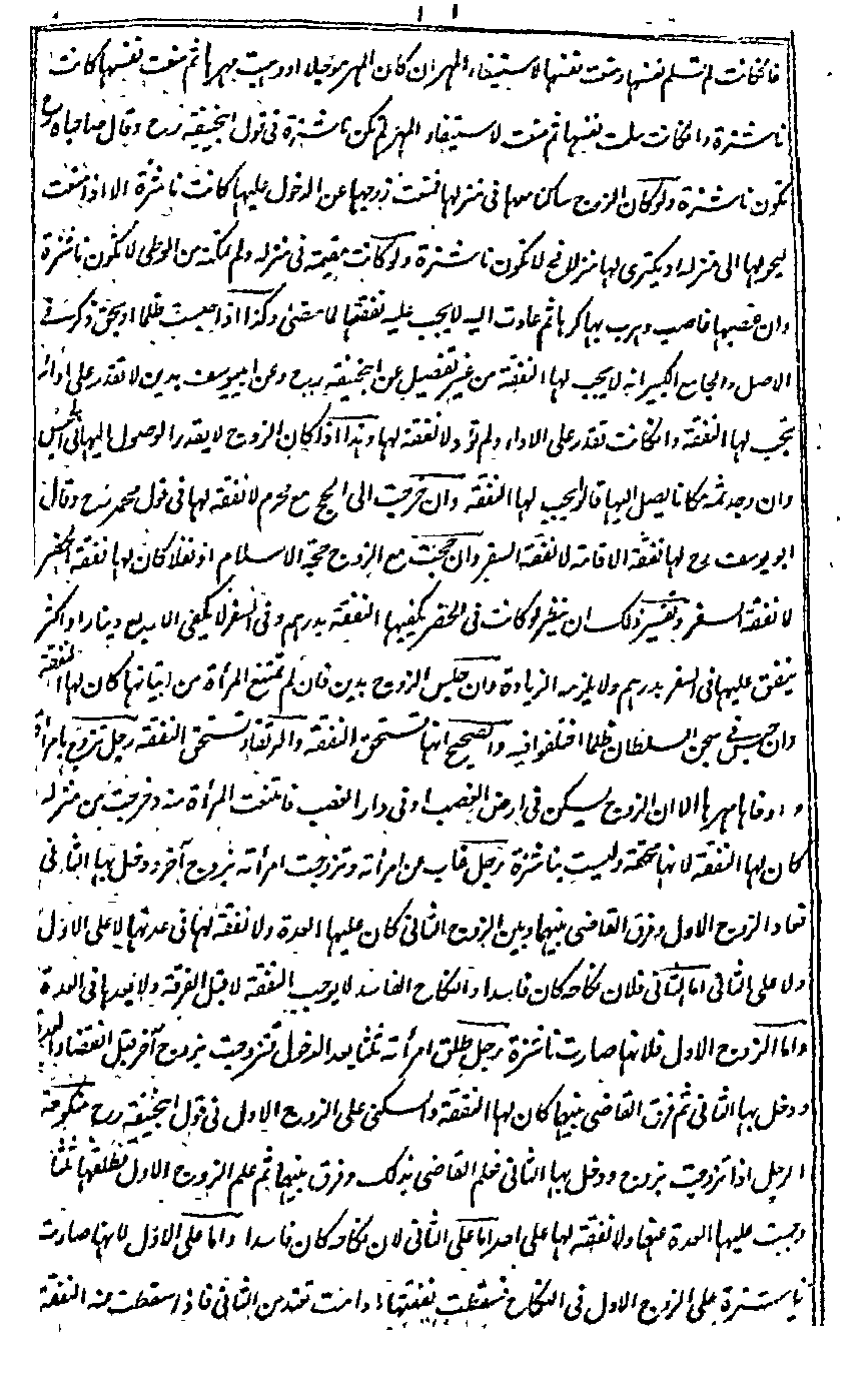 فان كانت لم تسلم نفسها ومنعت نفسها لاستيفاء المهر ان كان المهر مؤجلا او وهبت مهرها ثم منعت نفسها كانت
ناشزة وان كانت سلمت نفسها ثم منعت لاستيفاء المهر لم تكن ناشزة فى قول ابيحنيفة رح وقال صاحباه رح
تكون ناشزة ولو كان الزوج ساكن معها فى منزلها فمنعت زوجها عن الدخول عليها كانت ناشزة الا اذا منعت
ليحولها الى منزله او يكترى لها منزلا فح لا تكون ناشزة ولو كانت مقيمة فى منزله ولم تمكنه من الوطى لا تكون ناشزة
وان غصبها غاصب وهرب بها كرها ثم عادت اليه لا يجب عليه نفقتها لما مضى وكذا اذا حبست ظلما او بحق ذكر فى
الاصل والجامع الكبير انه لا يجب لها النفقة من غير تفصيل عن ابيحنيفة رح وعن ابيوسف بدين لا تقدر على ادائه
يجب لها النفقة وان كانت تقدر على الاداء ولم تؤد لا نفقة لها وهذا اذا كان الزوج لا يقدر الوصول اليها فى الحبس
وان وجد ثمه مكانا يصل اليها قالوا يجب لها النفقة وان خرجت الى الحج مع محرم لا نفقة لها فى قول محمد رح وقال
ابو يوسف رح لها نفقة الاقامة لا نفقة السفر وان حجت مع الزوج حجة الاسلام او نفلا كان لها نفقة الحضر
لا نفقة السفر وتفسير ذلك ان ينظر لو كانت فى الحضر يكفيها النفقة بدرهم وفى السفر لا يكفى الا بربع دينار او اكثر
ينفق عليها فى السفر بدرهم ولا يلزمه الزيادة وان حبس الزوج بدين فان لم تمتنع المرأة من اتيانها كان لها النفقة
وان حبس فى سجن السلطان ظلما اختلفوا فيه والصحيح انها تستحق النفقة والرتقاء تستحق النفقة رجل تزوج بامرأة
واوفاها مهرها الا ان الزوج يسكن فى ارض الغصب او فى دار الغصب فامتنعت المرأة منه وخرجت من منزله
كان لها النفقة لانها محقة وليست بناشزة رجل غاب عن امرأته وتزوجت امرأته بزوج آخر ودخل بها الثانى
فعاد الزوج الاول وفرق القاضى بينها وبين الزوج الثانى كان عليها العدة ولا نفقة لها فى عدتها لا على الاول
ولا على الثانى اما الثانى فلان نكاحه كان فاسدا والنكاح الفاسد لا يوجب النفقة لا قبل الفرقة ولا بعدها فى العدة
واما الزوج الاول فلانها صارت ناشزة رجل طلق امرأته ثلثا بعد الدخول فتزوجت بزوج آخر قبل انقضاء العدة
ودخل بها الثانى ثم فرق القاضى بينهما كان لها النفقة والسكنى على الزوج الاول فى قول ابيحنيفة رح منكوحة
الرجل اذا تزوجت بزوج ودخل بها الثانى فعلم القاضى بذلك وفرق بينهما ثم علم الزوج الاول فطلقها ثلثا
وجبت عليها العدة عنهما ولا نفقة لها على احد اما على الثانى لان نكاحه كان فاسدا واما على الاول لانها صارت
ناشزة على الزوج الاول فى النكاح فسقطت نفقتها ما دامت تعتد من الثانى فاذا سقطت عنه النفقة